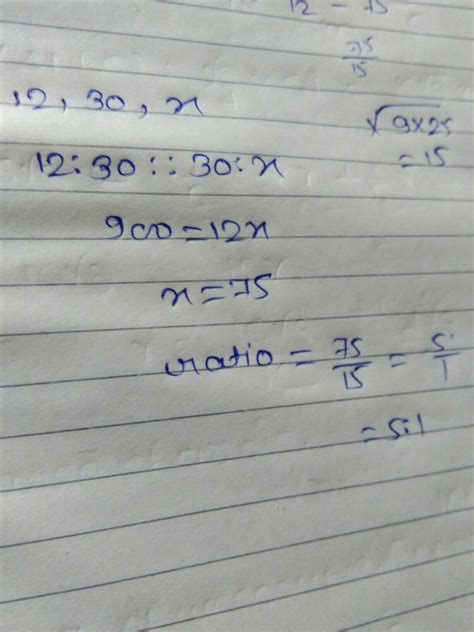 12 - 75
75/15
12, 30, x
√9×25
= 15
12:30::30:x
900=12x
x=75
ratio = 75/15 = 5/1
= 5:1